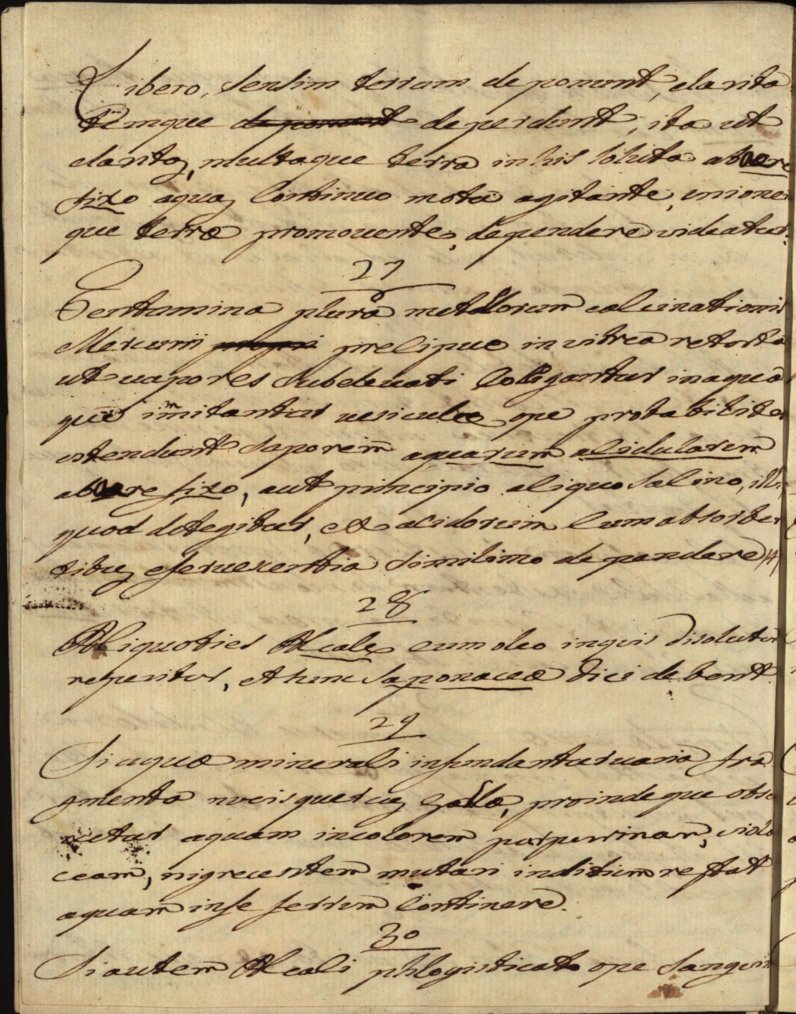 Libero, sensim terram deponunt, clarita
temque deponunt deperdunt, ita ut
claritq, multaque terra in his soluta ab aere
fixo aquaq continuo motu agitante, unionem
que terræ promovente, dependere videatur.
27
Tentamina plura metallorum calcinationis
Mercurii precipue in vitrea retorta
ut vapores subelevati colligantur in aqua
quem imitantur vesiculæ ope probabiliter
ostendunt saporem aquarum acidularum
ab aere fixo, aut principio aliquo salino, illi
quod detegitur, et acidorum cum absorben
tibuq efervexentia similimo dependere
28
Aliquoties Alcale cum oleo in quis disolutum
reperitur, et tunc saponaceæ dici debent.
29
Si aquæ minerali infundantur varia fra
gmenta nucis quercuq Galla, proindeque obser
vetur aquam incolorem purpurinam, viola
ceam, nigrecentem mutari inditium restat
aquam in se ferrum continere.
30
Si autem Alcali phlogisticato ope sanguin